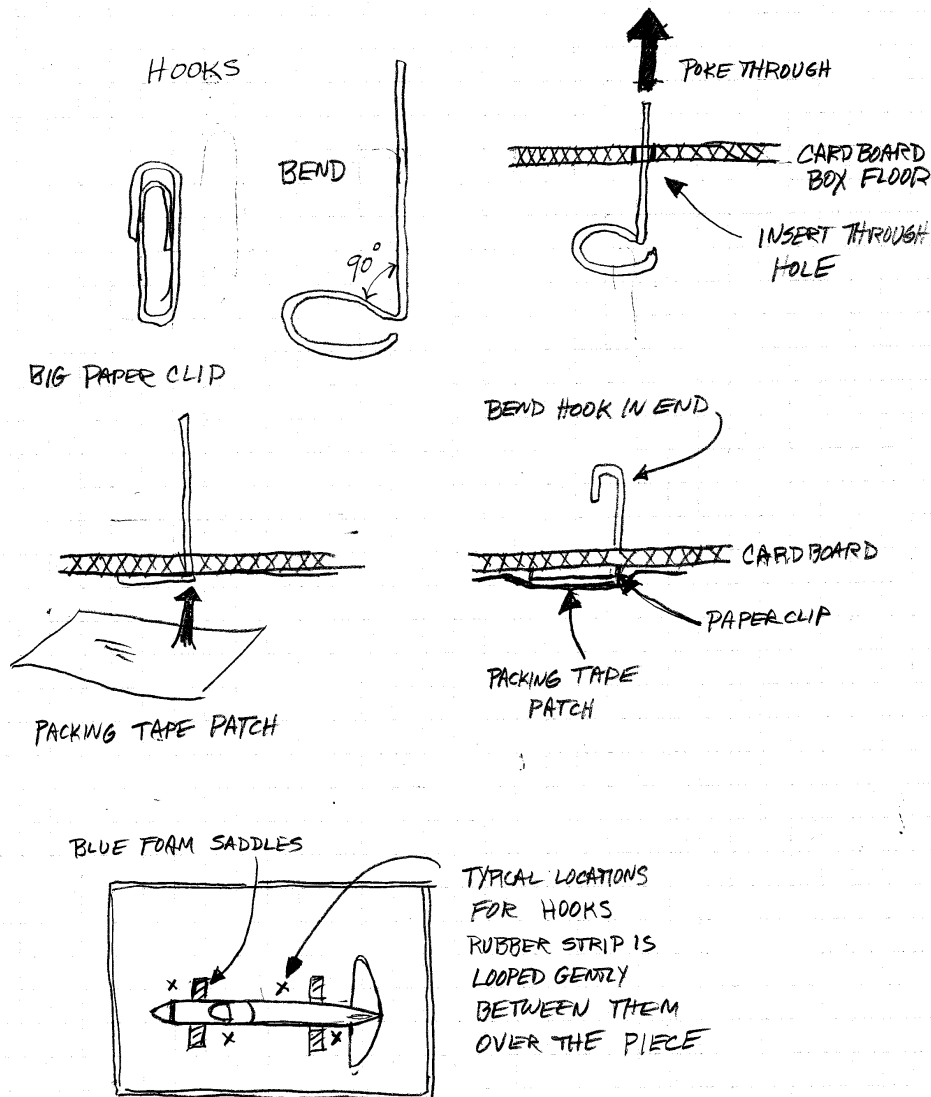 HOOKS
BEND
90°
BIG PAPER CLIP
POKE THROUGH
CARDBOARD
BOX FLOOR
INSERT THROUGH
HOLE
PACKING TAPE PATCH
BEND HOOK IN END
CARDBOARD
PAPERCLIP
PACKING TAPE
PATCH
BLUE FOAM SADDLES
TYPICAL LOCATIONS
FOR HOOKS
RUBBER STRIP IS
LOOPED GENTLY
BETWEEN THEM
OVER THE PIECE